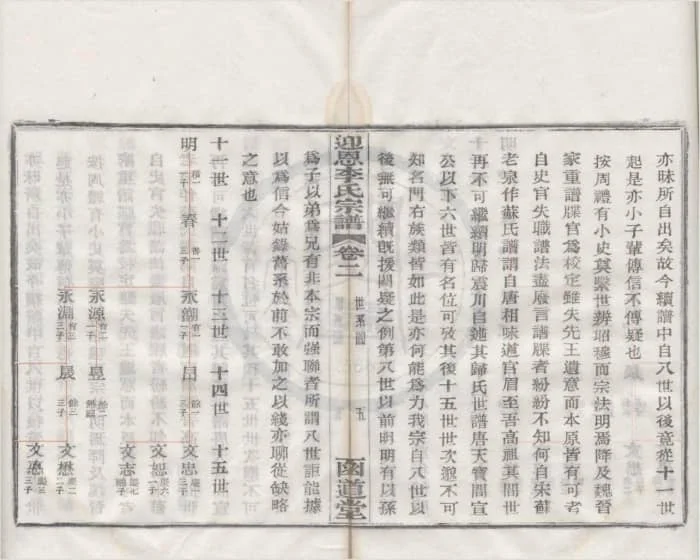 亦昧所自出矣故今續譜中自八世以後竟從十一世
起是亦小子輩傳信不傳疑也
按周禮有小史奠繫世辨昭穆而宗法明焉降及魏晉
家重譜牒官爲校定雖失先王遺意而本原皆有可考
自史官失職譜法盡廢言譜牒者紛紛不知何自宋蘇
老泉作蘇氏譜謂自唐相味道官眉至吾高祖其間世
再不可繼續明歸震川自述其歸氏世譜唐天寶間宣
公以下六世皆有名位可攷其後十五世世次邈不可
知名門右族類皆如此是亦何能爲力我宗自八世以
後無可繼續旣援闕疑之例第八世以前明明有以孫
迎恩李氏宗譜 卷二 世系圖 五 函道堂
爲子以弟爲兄有非本宗而强聯者所謂八世詎能據
以爲信今姑錄舊系於前不敢加之以綫亦聊從缺略
之意也
十一世 十二世 十三世 十四世 十五世
明 一子 春 三子 永潮 一子 昌 三子 文忠 三子
文恕 三子
永源 一子 昱 三子 文志 子
文懋 二子
永淵 三子 晟 三子 文慿 三子